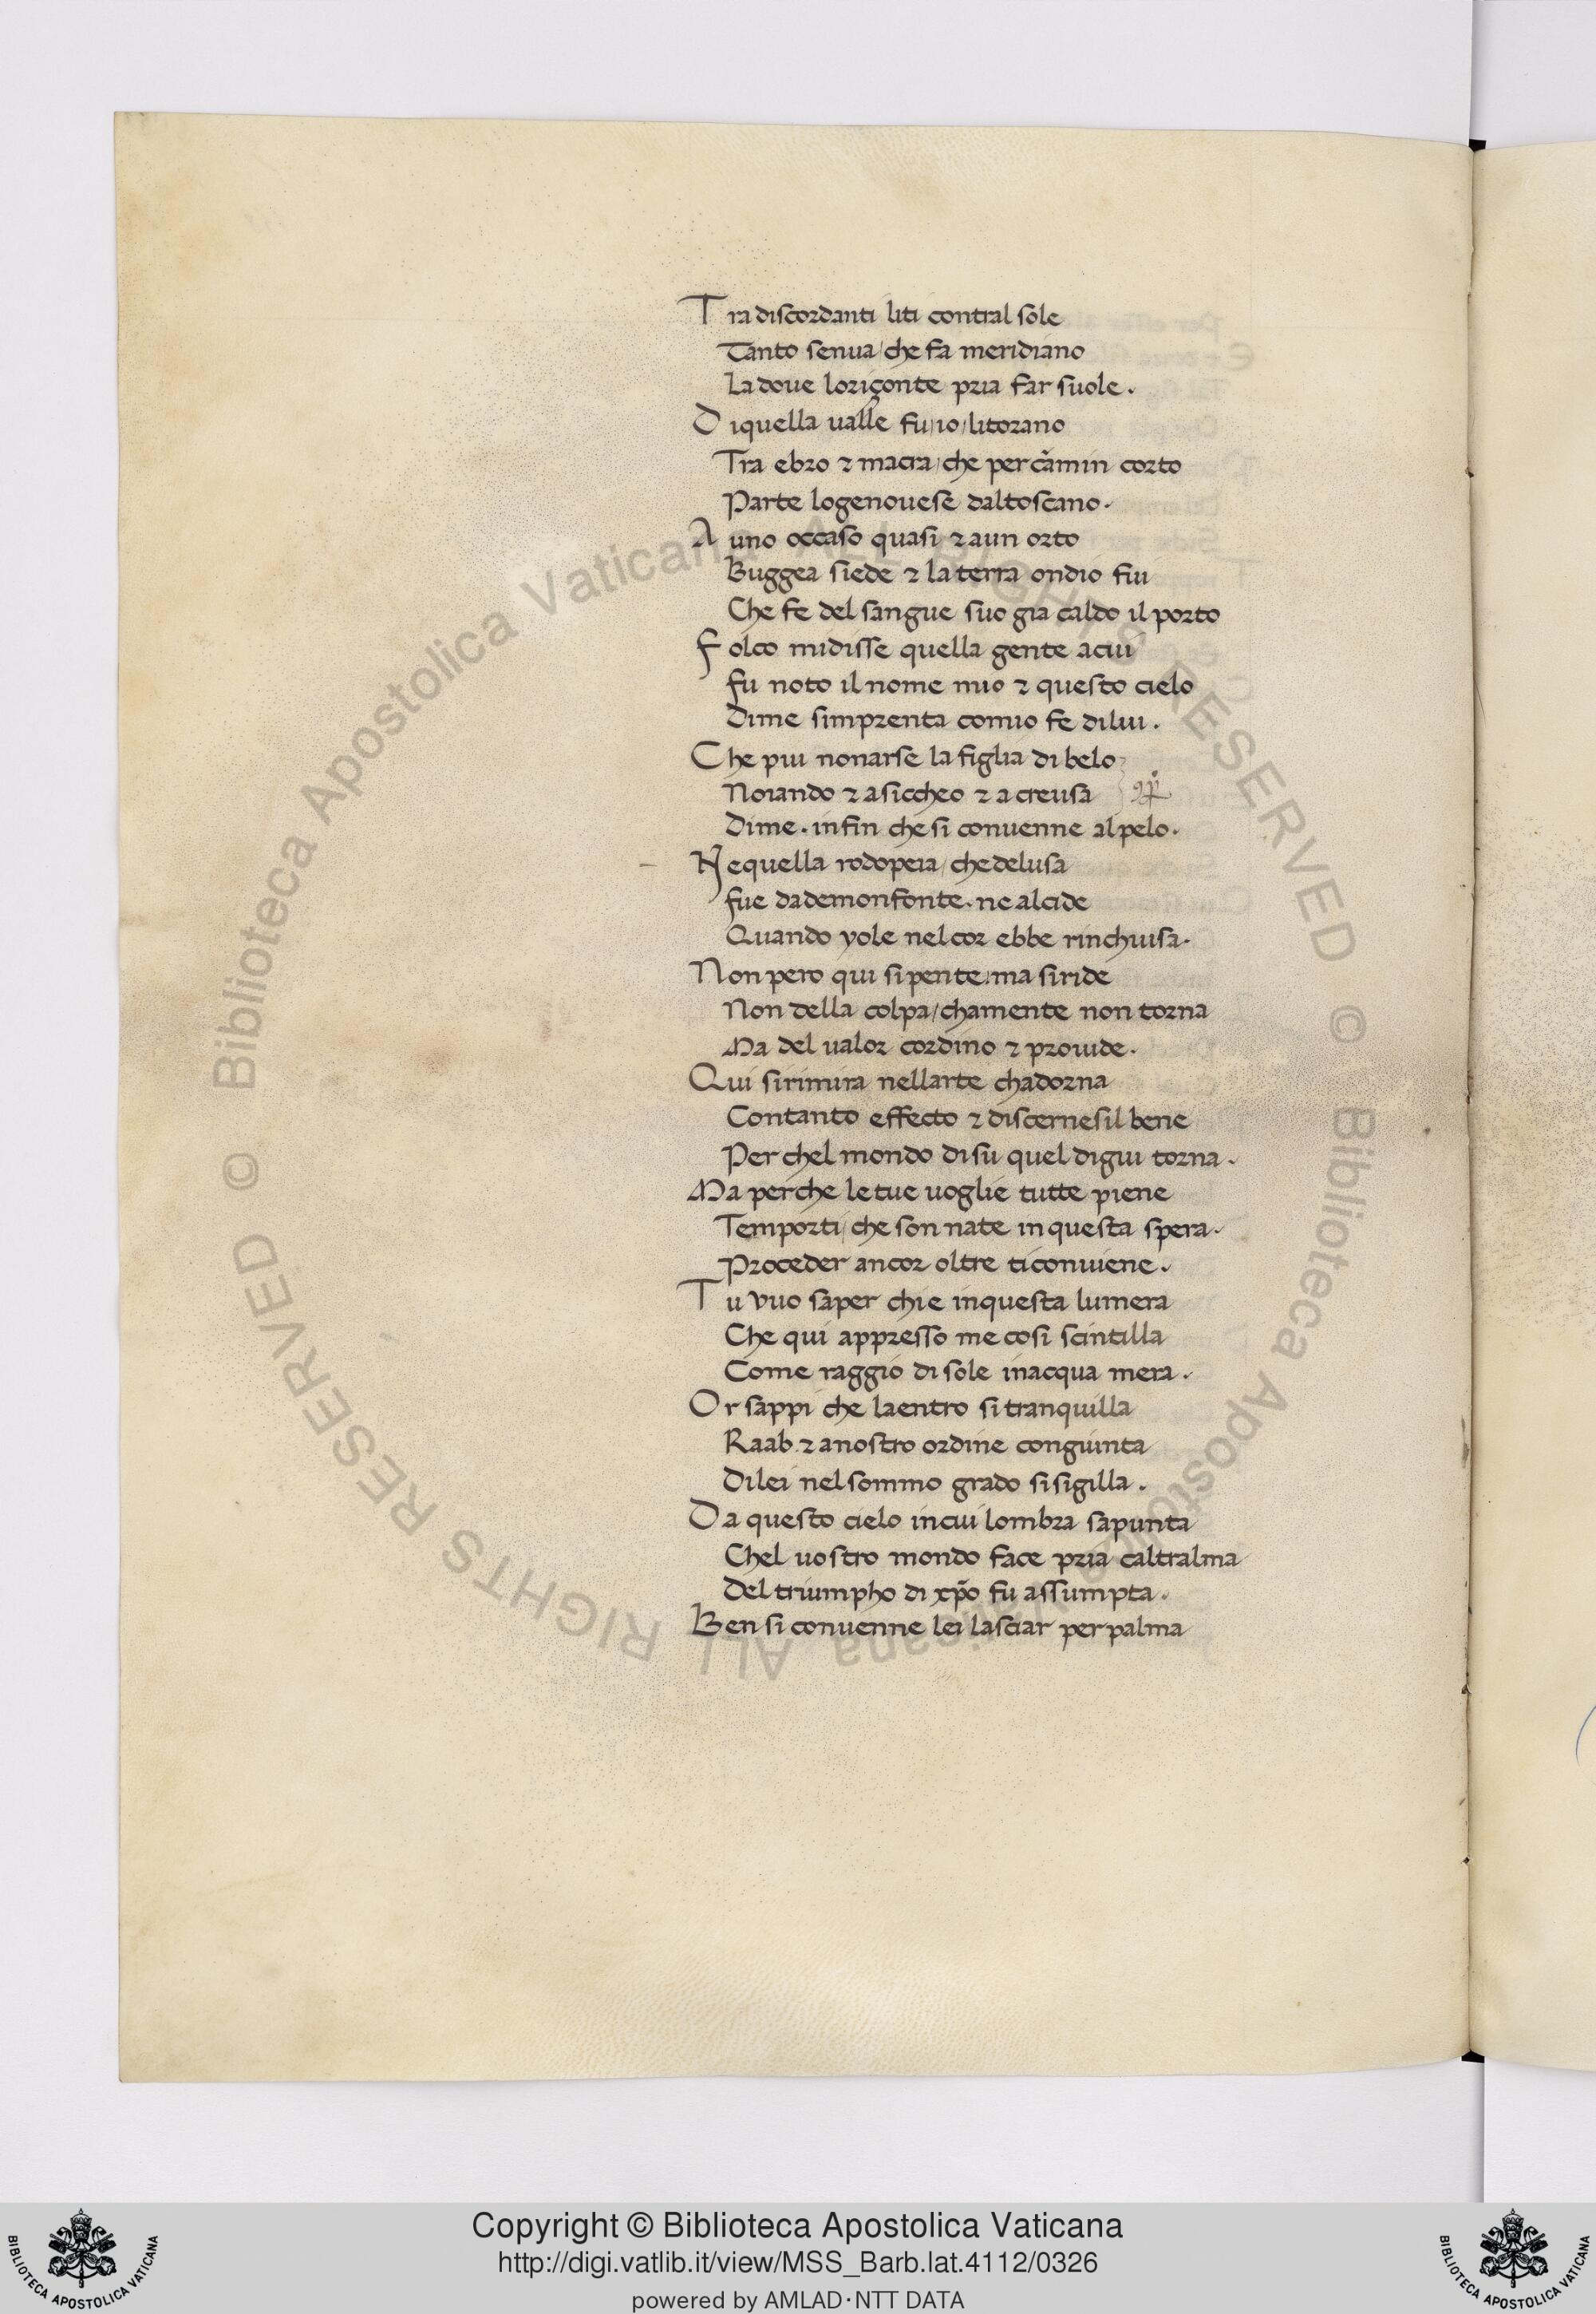 Tra discordanti liti contral sole
Tanto senua / che fa meridiano
La doue loriçonte pria far suole.
Diquella ualle fu / io / litorano
Tra ebro ⁊ macra / che per cāmin corto
Parte logenouese daltoscano.
A uno occaso quasi ⁊ aun orto
Buggea siede ⁊ la terra ondio fiu
Che fe del sangue suo gia caldo il porto
Folco midisse quella gente acui
fu noto il nome mio ⁊ questo cielo
Dime simprenta comio fe dilui.
Che piu nonarse la figlia di belo
Noiando ⁊ a siccheo ⁊ a creusa
Dime. infin che si conuenne alpelo.
Nequella rodopeia / chedelusa
fue dademonfonte. ne alcide
Quando yole nelcor ebbe rinchiusa.
Non pero qui sipente / ma siride
Non della colpa / chamente non torna
Ma del ualor cordino ⁊ prouide.
Qui sirimira nellarte chadorna
Contanto effecto ⁊ discernesil bene
Per chel mondo disu quel digiu torna.
Ma perche letue uoglie tutte piene
Temporti / che son nate inquesta spera.
Proceder ancor oltre ticonuiene.
Tu vuo saper chi e inquesta lumera
Che qui appresso me cosi scintilla
Come raggio di sole inacqua mera.
Or sappi che laentro si tranquilla
Raab. ⁊ anostro ordine congiunta
Dilei nelsommo grado sisigilla.
Da questo cielo incui lombra sapunta
Chel uostro mondo face pria caltralma
Del triumpho di xp̄o fu assumpta.
Ben si conuenne lei lasciar per palma
© Biblioteca Apostolica Vaticana ALL RIGHTS RESERVED © Biblioteca Apostolica Vaticana ALL RIGHTS RESERVED
Copyright © Biblioteca Apostolica Vaticana
http://digi.vatlib.it/view/MSS_Barb.lat.4112/0326
powered by AMLAD·NTT DATA
BIBLIOTECA APOSTOLICA VATICANA
BIBLIOTECA APOSTOLICA VATICANA